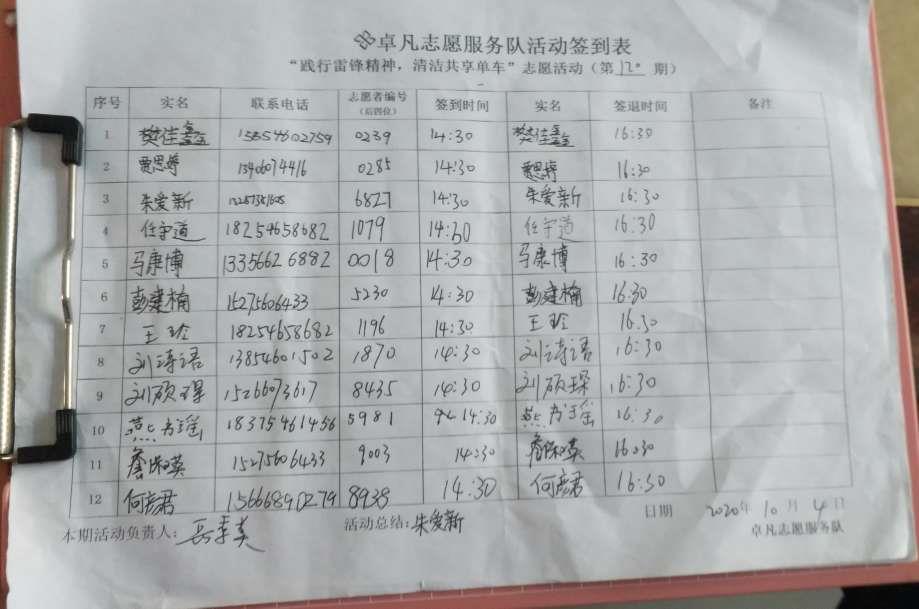 卓凡志愿服务队活动签到表
“践行雷锋精神,清洁共享单车”志愿活动(第120期)
序号 实名 联系电话 志愿者编号(后四位) 签到时间 实名 签退时间 备注
1 樊佳鑫 15554602759 0239 14:30 樊佳鑫 16:30
2 贾思婷 13406074416 0285 14:30 贾思婷 16:30
3 朱爱新 6827 14:30 朱爱新 16:30
4 任宇道 18254658682 1079 14:30 任宇道 16:30
5 马康博 13356626882 0018 14:30 马康博 16:30
6 彭建楠 15275606433 5230 14:30 彭建楠 16:30
7 王玲 18254658682 1196 14:30 王玲 16:30
8 刘诗语 13854601502 1870 14:30 刘诗语 16:30
9 刘硕琛 15266073617 8435 14:30 刘硕琛 16:30
10 燕书瑶 18375461456 5981 14:30 燕书瑶 16:30
11 詹保英 15275606433 9003 14:30 詹保英 16:30
12 何彦君 15666890279 8938 14:30 何彦君 16:30
本期活动负责人: 活动总结:朱爱新 日期 2020年10月4日
卓凡志愿服务队